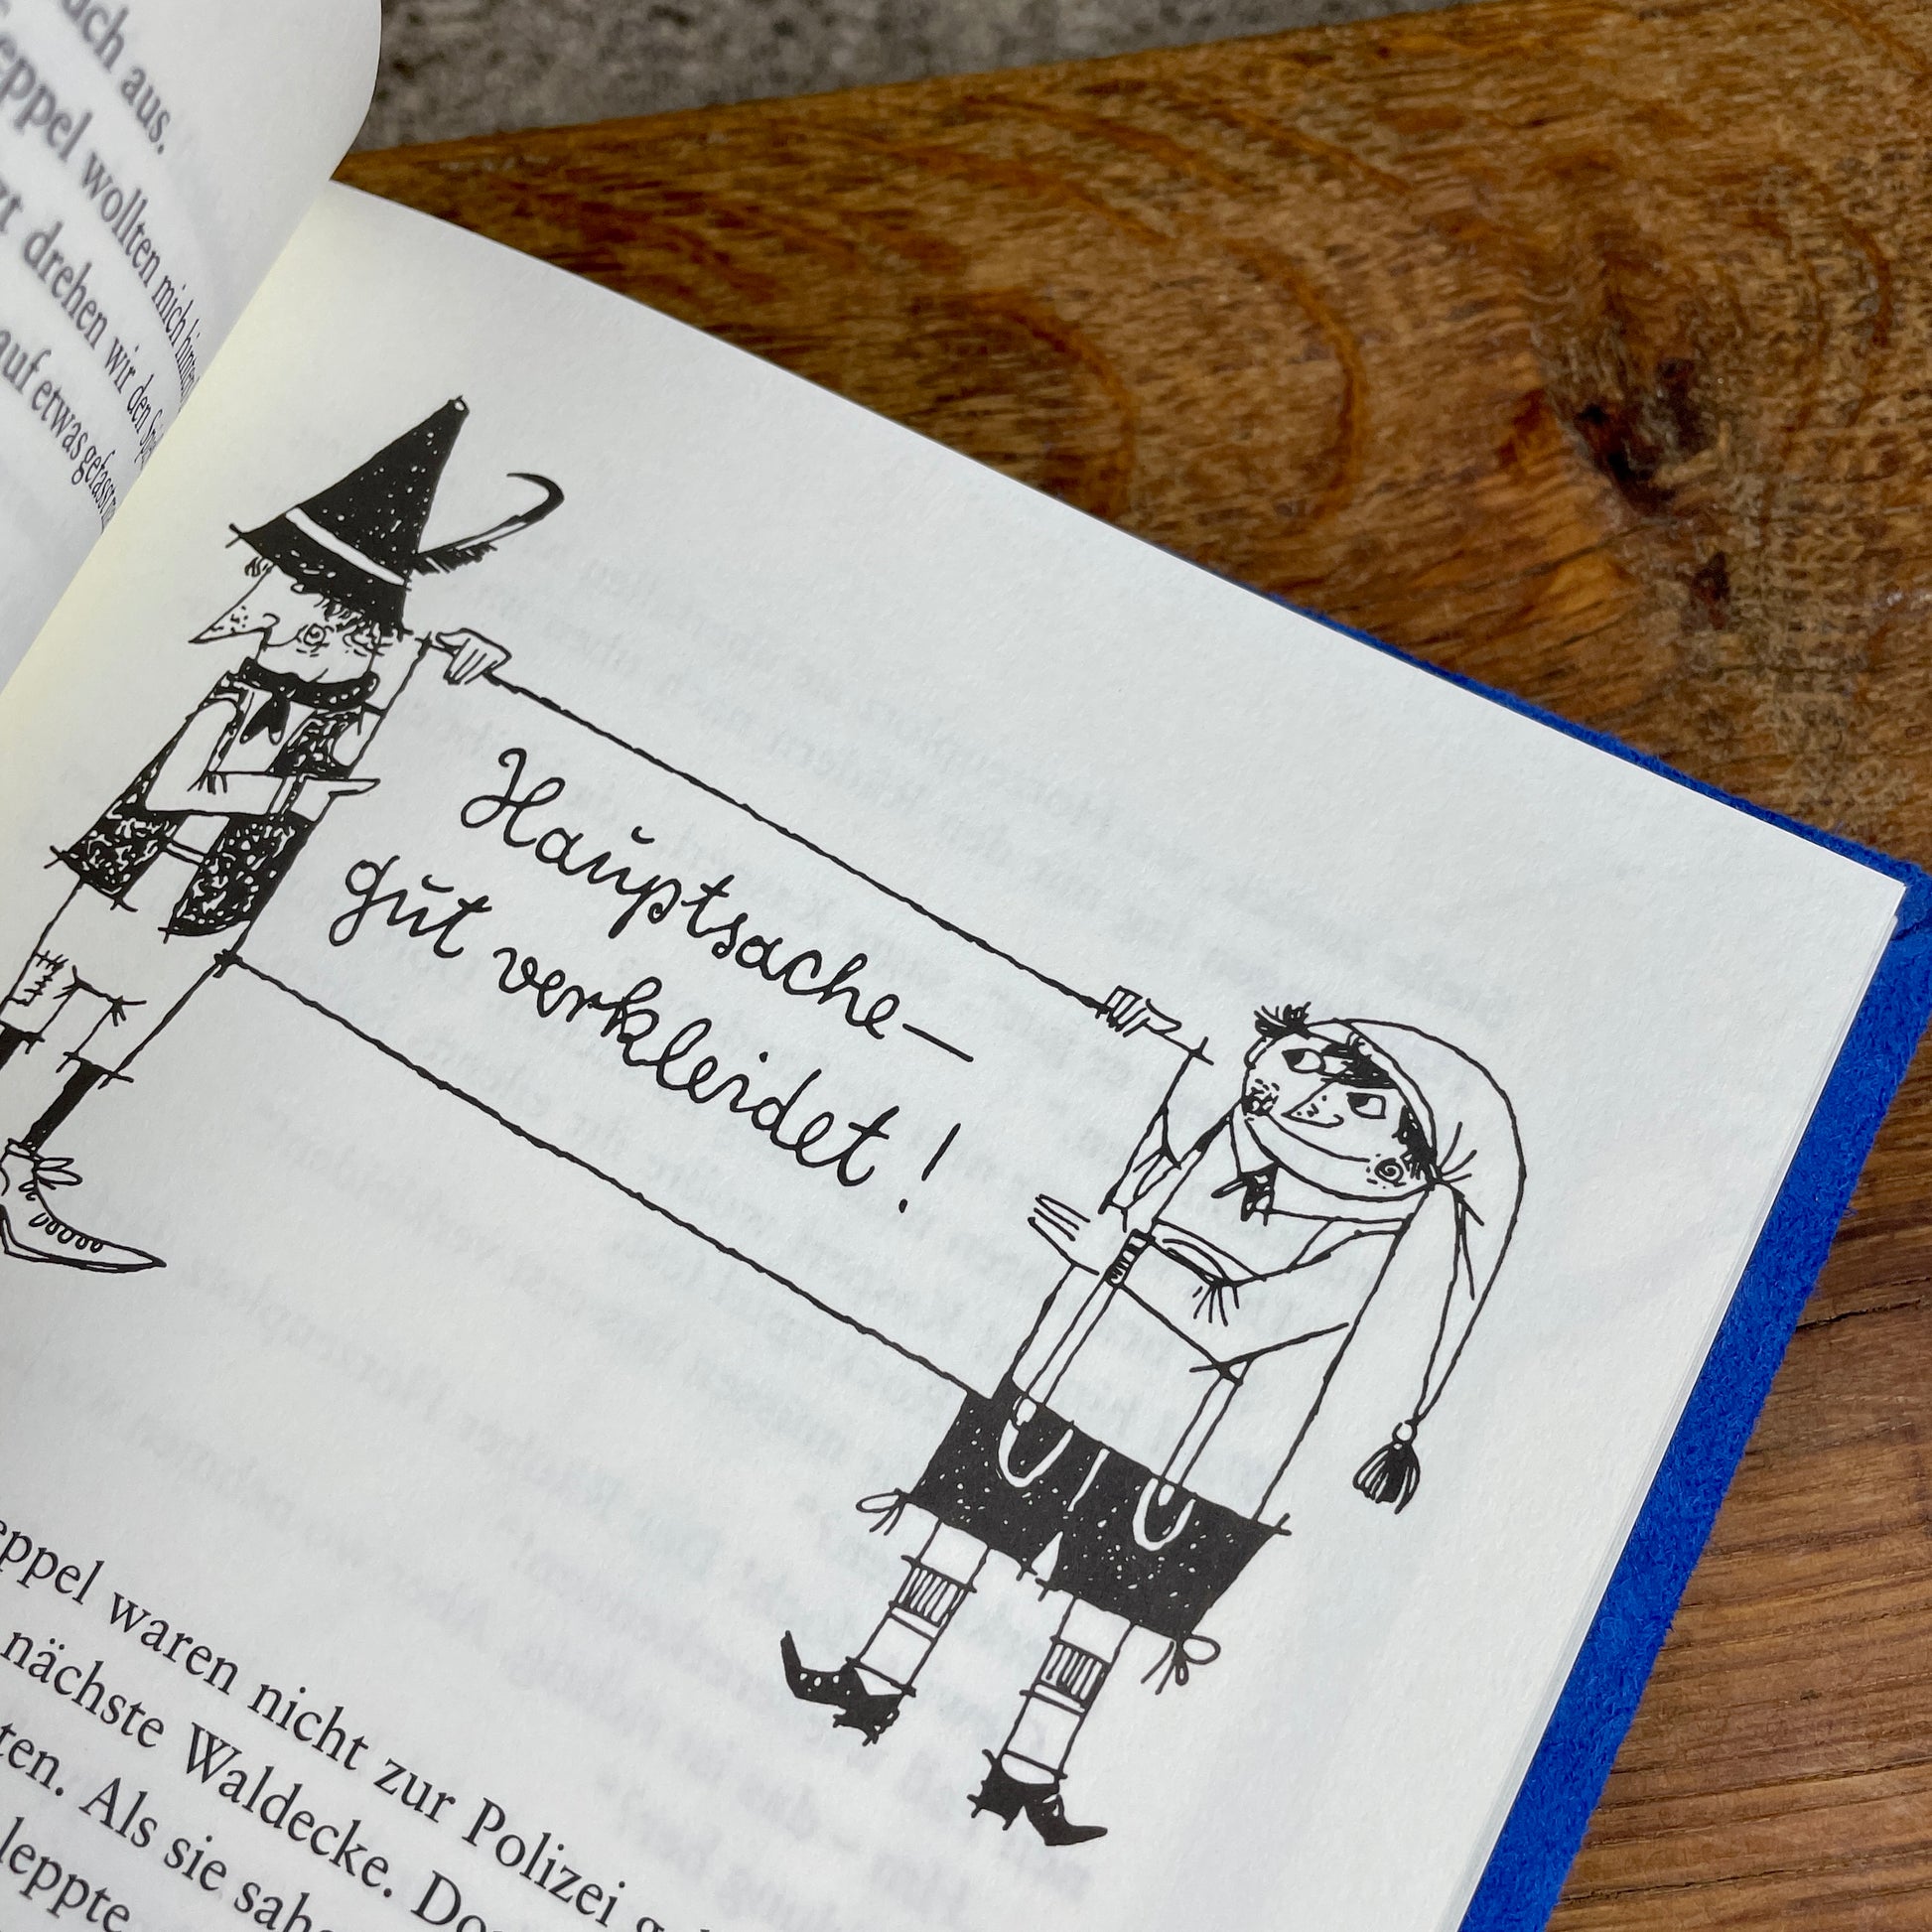 uch aus.
eppel wollten mich
drehen wir den
auf etwas gefasst
Hauptsache—
gut verkleidet!
eppel waren nicht zur Polizei
nächste Waldecke.
ten. Als sie
leppte